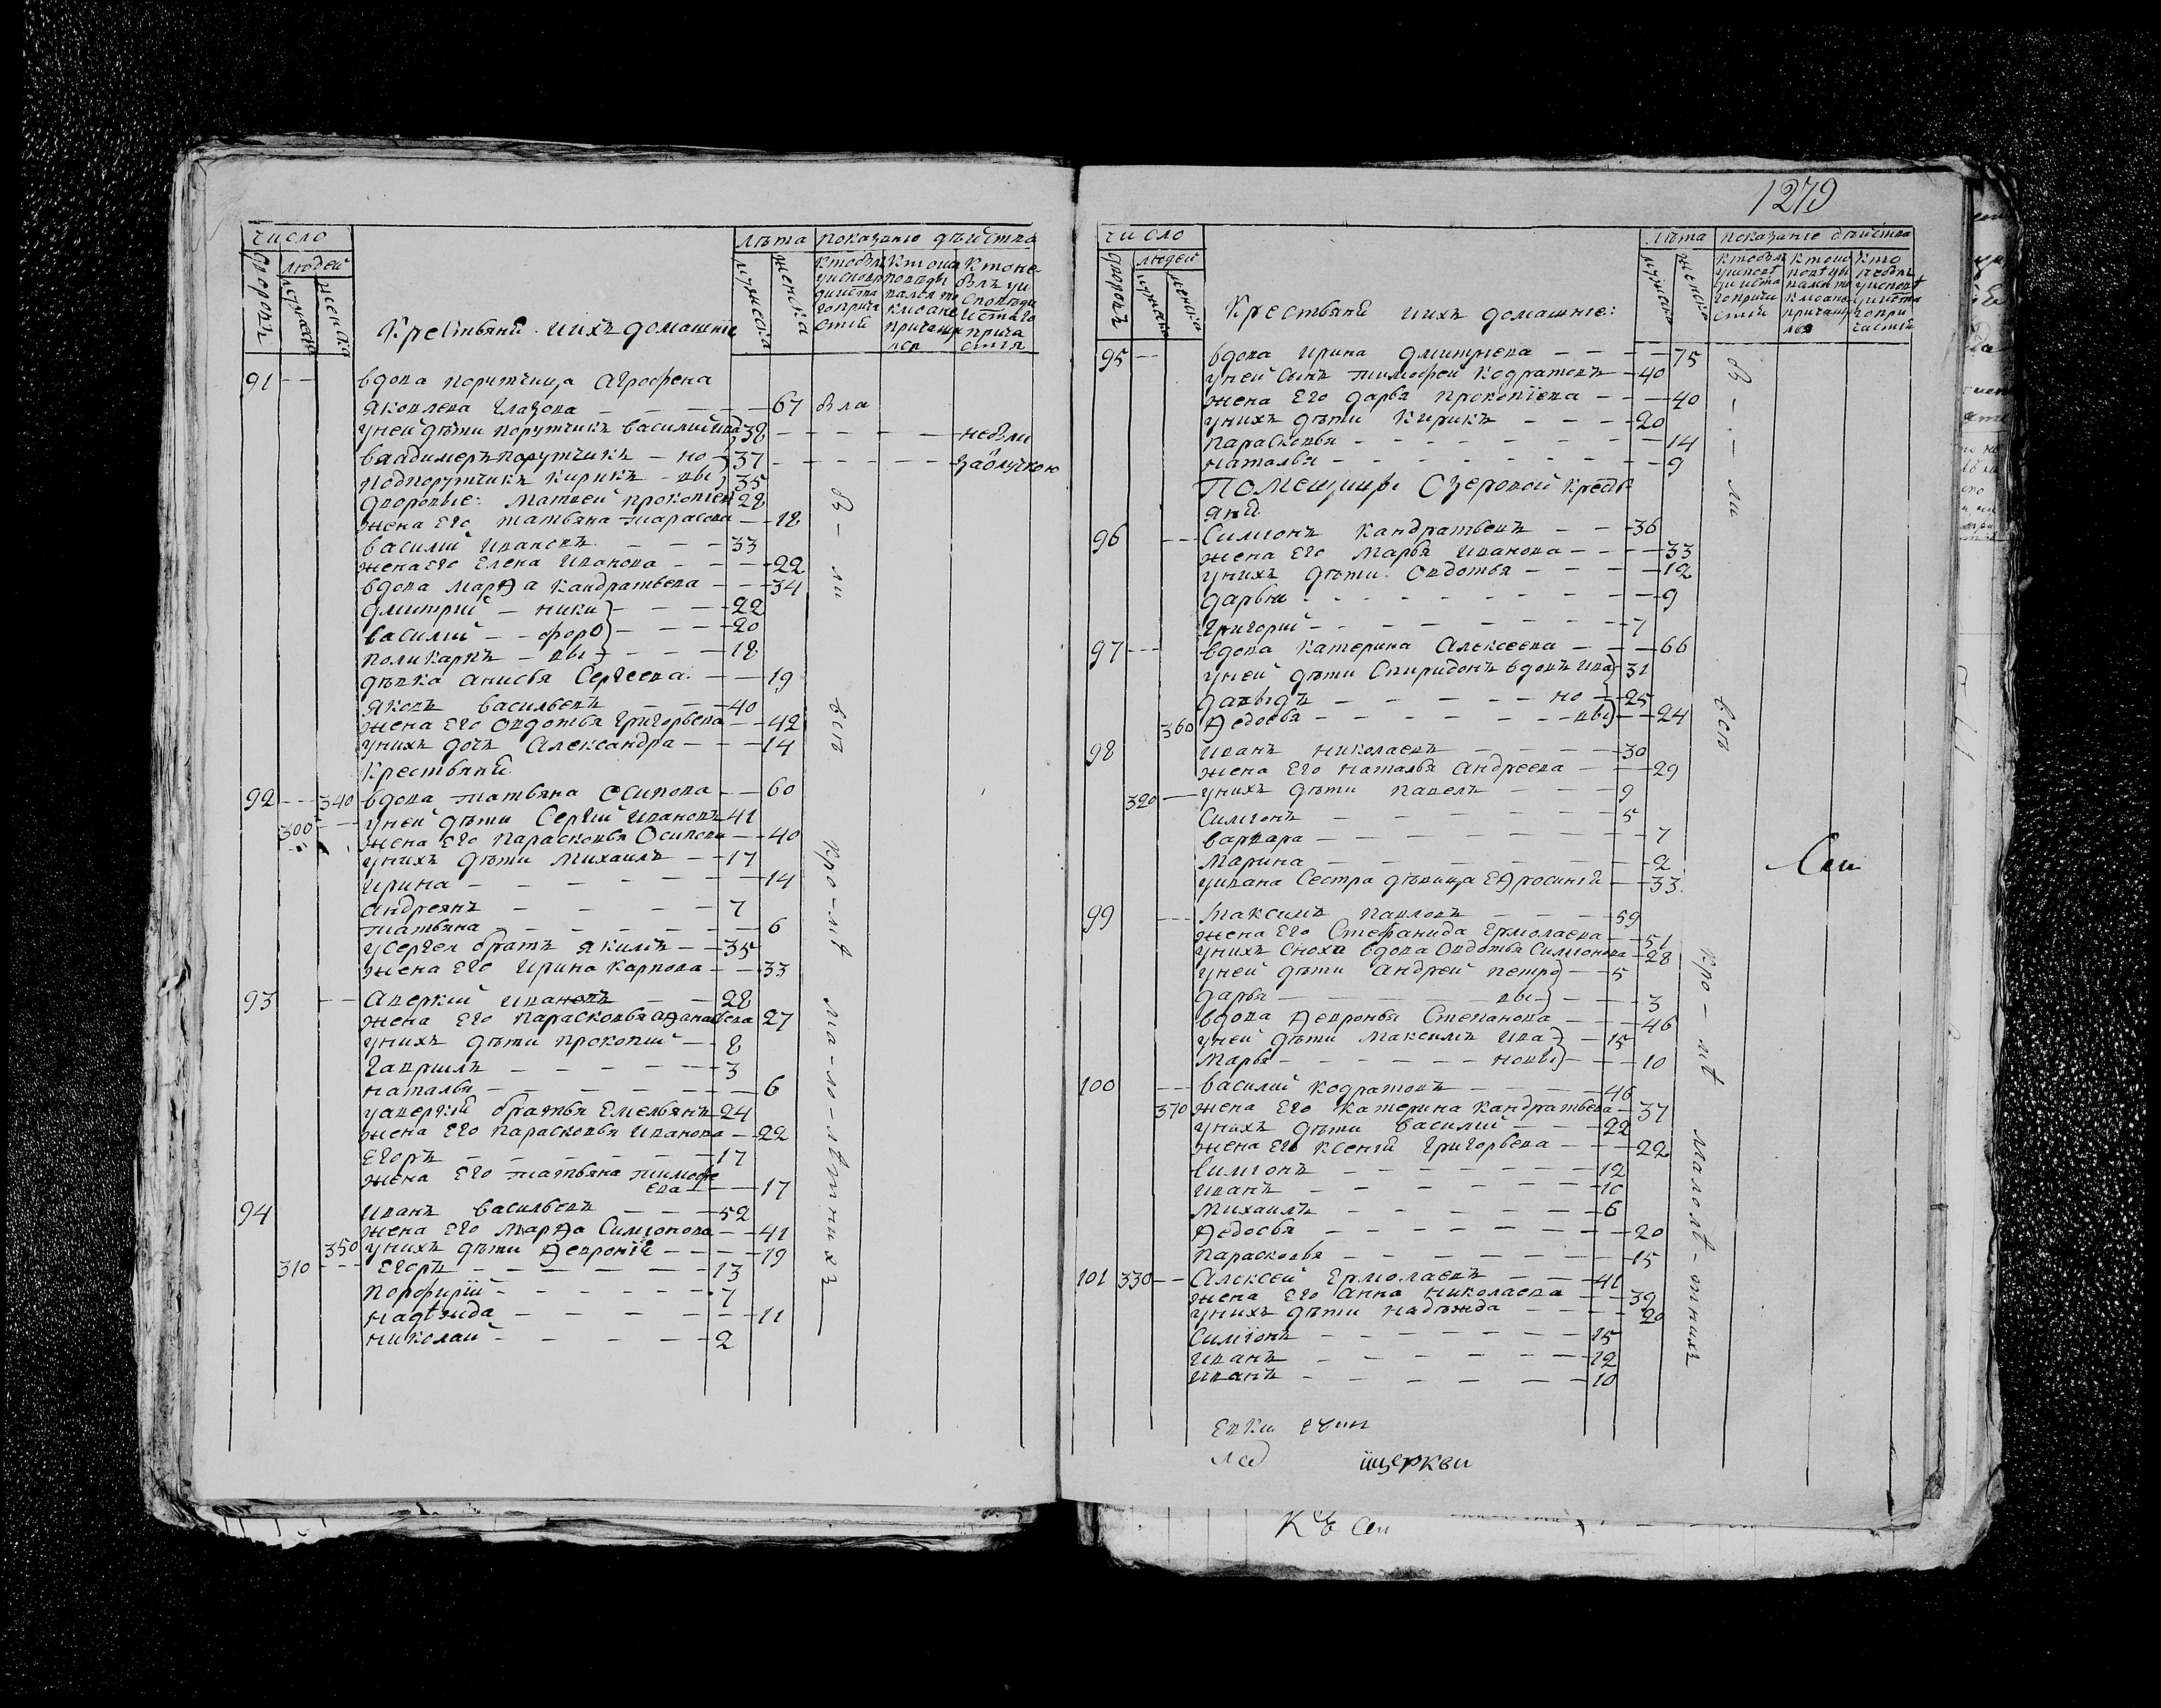 число
людей
дворовъ
мужеска
женска
Крестьяня иихъ домашние
лѣта
мужеска
женска
показание дѣйства
91 вдова порутчица Агрофена
Яковлева Глазова 67 была
унеи дѣти порутчикъ василий ива 38 небыли
владимеръ порутчикъ но 37 заотлучкою
подпорутчикъ кирикъ вы 35
дворовые: Матвей прокопиев 28
жена Его татьяна тарасова 18
василий ивановъ 33
жена его Елена Иванова 22
вдова Марѳа Кандратьева 34
дмитрий ники 22
василий форо 20
поликарпъ вы 18
дѣвка анисья Сергеева 19
яковъ васильевъ 40
жена Его Овдотья Григорьева 42
унихъ дочь Александра 14
Крестьяня
92 340 вдова татьяна Осипова 60
300 унеи дѣти Сергий Ивановъ 41
жена Его Парасковья Осипова 40
унихъ дѣти Михаилъ 17
ирина 14
андреянъ 7
татьяна 6
уСергея братъ якимъ 35
жена Его Ирина Карпова 33
93 Аверкий ивановъ 28
жена Его Парасковья аѳанасьева 27
унихъ дѣти прокопий 8
Гаврилъ 3
наталья 6
уаверкия братья Емельянъ 24
жена Его Парасковья Иванова 22
Егоръ 17
жена Его татьяна тимофе
ева 17
94 Иванъ васильевъ 52
жена Его Марѳа Симионова 41
350 унихъ дѣти Ѳеврония 19
310 Егоръ 13
Порфирий 7
надѣжда 11
николаи 2
бы-ли всѣ кро-мѣ ма-ло-лѣтнихъ
1279
число
людей
дворовъ
мужеска
женска
Крестьяня иихъ домашние:
лѣта
мужеска
женска
показание дѣиства
95 вдова ирина дмитриева 75
унеи сынъ тимофеи Кодратовъ 40
жена Его дарья прокопиева 40
унихъ дѣти Кирикъ 20
парасковья 14
наталья 9
Помещицы Озеровой кресть
яня
96 Симионъ Кандратьевъ 36
жена Его Марья Иванова 33
унихъ дѣти Овдотья 12
дарья 9
Григорий 7
97 вдова Катерина Алексеева 66
унеи дѣти Спиридонъ вдовъ ива 31
давыдъ но 25
360 Ѳедосья вы 24
98 Иванъ николаевъ 30
жена Его наталья андреева 29
320 унихъ дѣти павелъ 9
Симионъ 5
варвара 7
Марина 2
уивана Сестра дѣвица Еѳросиния 33
99 Максимъ павловъ 59
жена Его Стефанида Ермолаева 51
унихъ сноха вдова Овдотья Симионова 28
унеи дѣти андреи петро 5
дарья вы 3
вдова Ѳевронья Степанова 46
унеи дѣти Максимъ ива 15
Марья новы 10
100 василий кодратовъ 46
370 жена Его Катерина Кандратьева 37
унихъ дѣти василий 22
жена Его Ксения Григорьева 22
Симионъ 12
Иванъ 10
Михаилъ 6
Ѳедосья 20
Парасковья 15
101 330 Алексеи Ермолаевъ 41
жена Его анна николаева 39
унихъ дѣти надѣжда 20
Симионъ 15
Иванъ 12
Иванъ 10
бы-ли всѣ кро-мѣ малолѣ-тнихъ
Сей
ицеркви